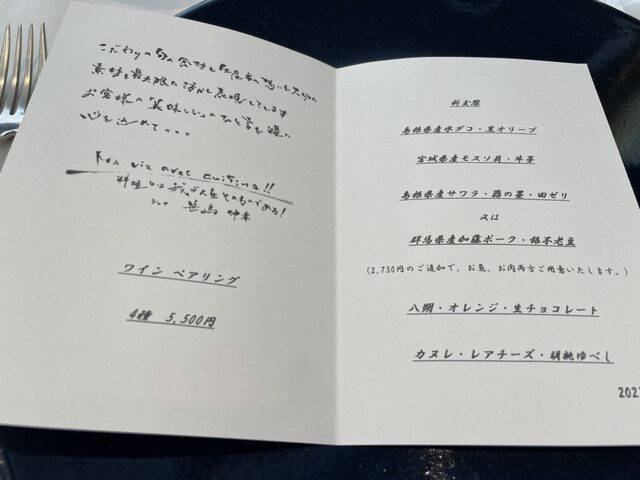 こだわりの旬の食材と生産者の想いを大切に
素材を最大限に活かし表現しています
お客様の「美味しい」のひと言を糧に
心を込めて。。。
Ma vie avec cuisine!!
料理とは我が人生そのものである!
シェフ
ワイン ペアリング
4種 5,500円
新玉葱
島根県産水ダコ・黒オリーブ
宮城県産モスソ貝・牛蒡
島根県産サワラ・蕗の薹・田ゼリ
又は
群馬県産加藤ポーク・銀不老豆
(2,750円のご追加で、お魚、お肉両方ご用意いたします。)
八朔・オレンジ・生チョコレート
カヌレ・レアチーズ・胡桃ゆべし